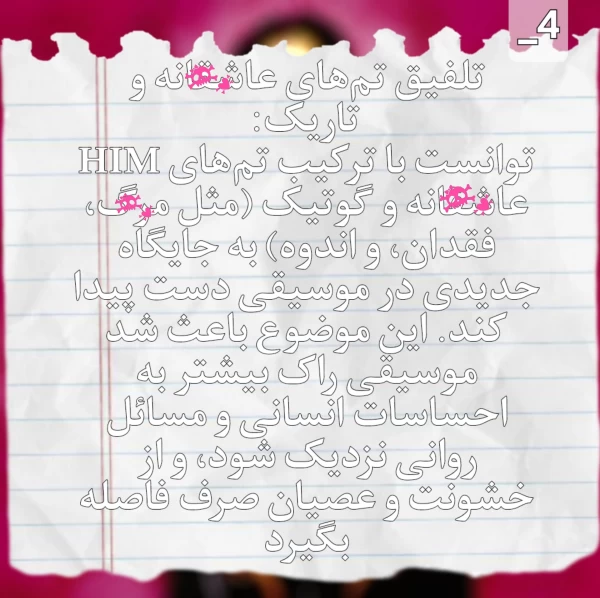 4_
تلفیق تم‌های عاشقانه و
تاریک:
توانست با ترکیب تم‌های HIM
عاشقانه و گوتیک (مثل مرگ،
فقدان، و اندوه) به جایگاه
جدیدی در موسیقی دست پیدا
کند. این موضوع باعث شد
موسیقی راک بیشتر به
احساسات انسانی و مسائل
روانی نزدیک شود، و از
خشونت و عصیان صرف فاصله
بگیرد